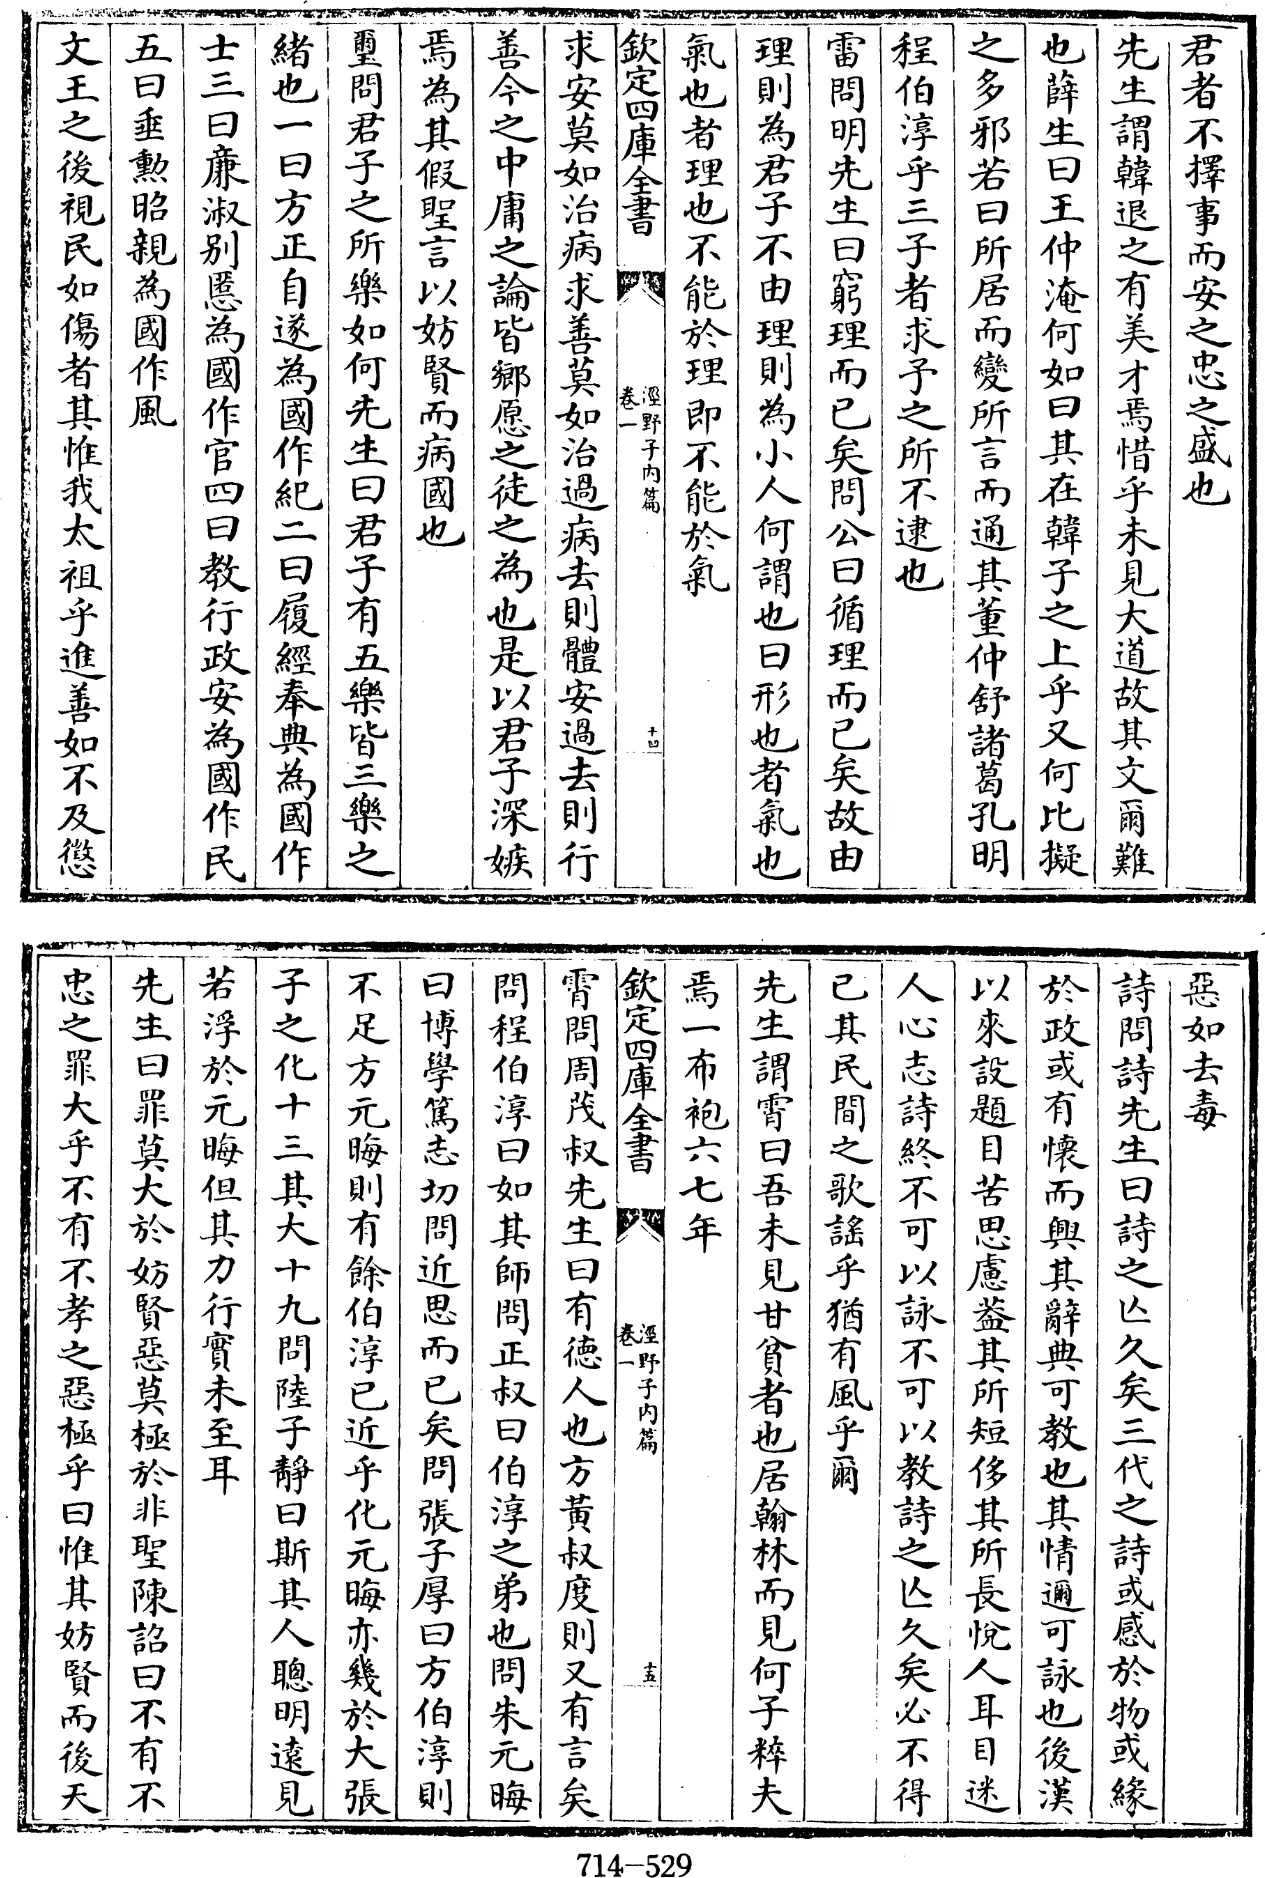 君者不擇事而安之忠之盛也
先生謂韓退之有美才焉惜乎未見大道故其文爾難
也薛生曰王仲淹何如曰其在韓子之上乎又何比擬
之多邪若曰所居而變所言而通其董仲舒諸葛孔明
程伯淳乎三子者求予之所不逮也
雷問明先生曰窮理而已矣問公曰循理而已矣故由
理則為君子不由理則為小人何謂也曰形也者氣也
氣也者理也不能於理即不能於氣
欽定四庫全書
涇野子內篇
卷一
十四
求安莫如治病求善莫如治過病去則體安過去則行
善今之中庸之論皆鄉愿之徒之為也是以君子深嫉
焉為其假聖言以妨賢而病國也
璽問君子之所樂如何先生曰君子有五樂皆三樂之
緒也一曰方正自遂為國作紀二曰履經奉典為國作
士三曰廉淑别慝為國作官四曰教行政安為國作民
五曰垂勲昭親為國作風
文王之後視民如傷者其惟我太祖乎進善如不及懲
惡如去毒
詩問詩先生曰詩之亾久矣三代之詩或感於物或緣
於政或有懷而興其辭典可教也其情邇可詠也後漢
以來設題目苦思慮葢其所短侈其所長悅人耳目迷
人心志詩終不可以詠不可以教詩之亾久矣必不得
已其民間之歌謡乎猶有風乎爾
先生謂霄曰吾未見甘貧者也居翰林而見何子粹夫
焉一布袍六七年
欽定四庫全書
涇野子內篇
卷一
十五
霄問周茂叔先生曰有德人也方黃叔度則又有言矣
問程伯淳曰如其師問正叔曰伯淳之弟也問朱元晦
曰博學篤志切問近思而已矣問張子厚曰方伯淳則
不足方元晦則有餘伯淳已近乎化元晦亦幾於大張
子之化十三其大十九問陸子靜曰斯其人聰明遠見
若浮於元晦但其力行實未至耳
先生曰罪莫大於妨賢惡莫極於非聖陳詔曰不有不
忠之罪大乎不有不孝之惡極乎曰惟其妨賢而後天
714-529